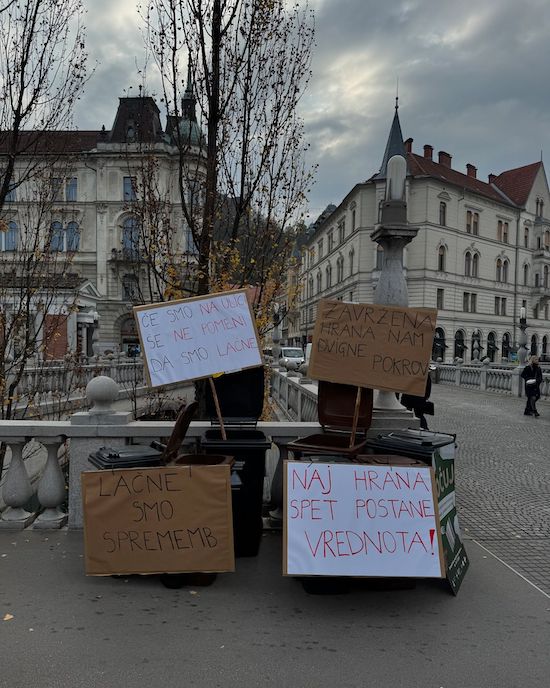 ČE SMO NA ULICI
ŠE NE POMENI
DA SMO LAČNE
ZAVRŽENA
HRANA NAM
DVIGNE
POKROV
LAČNE
SMO
SPREMEMB
NAJ HRANA
SPET POSTANE
VREDNOTA!